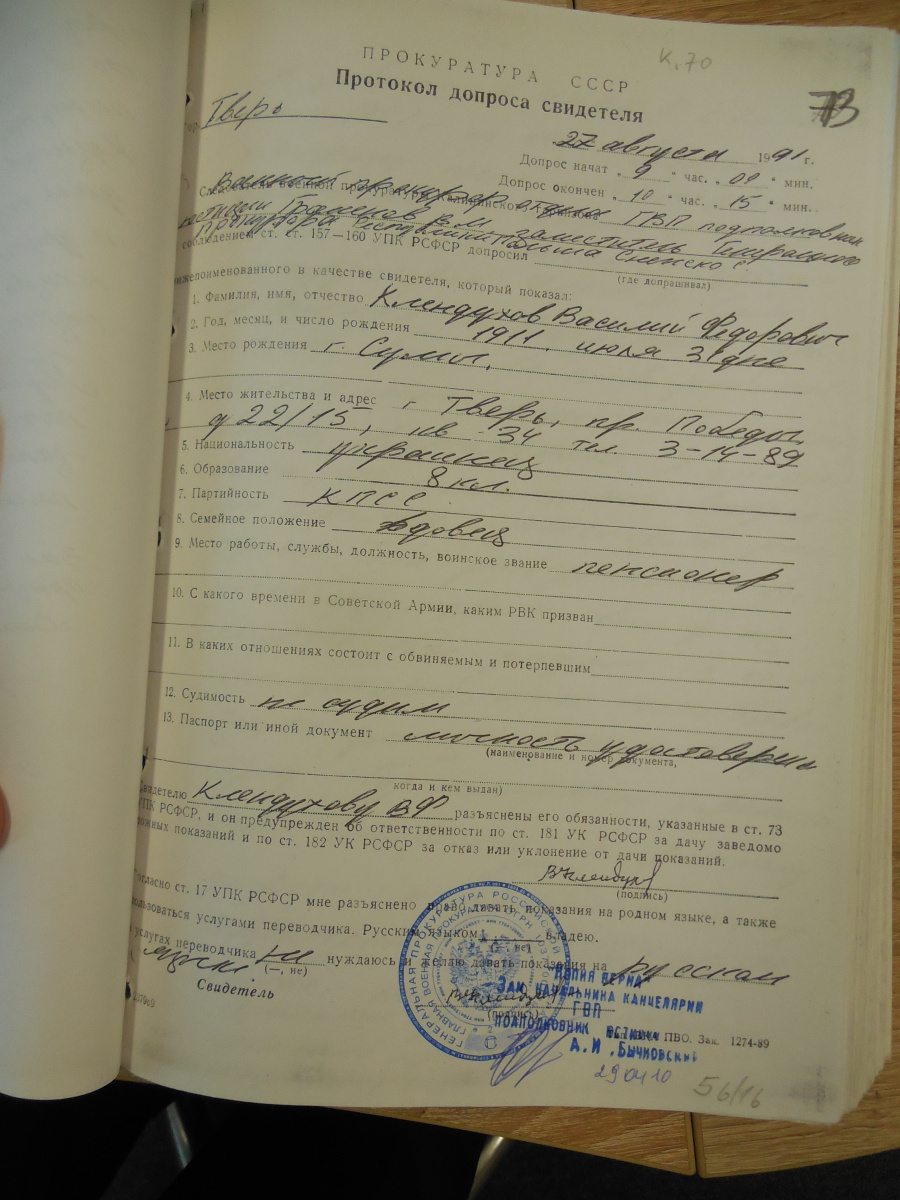 К. 70
73
ПРОКУРАТУРА СССР
Протокол допроса свидетеля
Тверь
27 августа 1991 г.
Допрос начат 9 час. 00 мин.
Допрос окончен 10 час. 15 мин.
Военный прокурор отдела ГВП подполковник
юстиции В.М. заместитель Генерального
прокурора Республики Польша Снежко С.
соблюдением ст. ст. 157—160 УПК РСФСР допросил
(где допрашивал)
нижепоименованного в качестве свидетеля, который показал:
1. Фамилия, имя, отчество Клендухов Василий Федорович
2. Год, месяц, и число рождения 1911 июля 31 дня
3. Место рождения г. Сумы.
4. Место жительства и адрес г Тверь, пр. Победы,
д 22/15, кв 34 тел. 3-14-89
5. Национальность украинец
6. Образование 8 кл.
7. Партийность КПСС
8. Семейное положение вдовец
9. Место работы, службы, должность, воинское звание пенсионер
10. С какого времени в Советской Армии, каким РВК призван
11. В каких отношениях состоит с обвиняемым и потерпевшим
12. Судимость не судим
13. Паспорт или иной документ личность удостоверена
(наименование и номер документа,
когда и кем выдан)
Свидетелю Клендухову ВФ разъяснены его обязанности, указанные в ст. 73
УПК РСФСР, и он предупрежден об ответственности по ст. 181 УК РСФСР за дачу заведомо
ложных показаний и по ст. 182 УК РСФСР за отказ или уклонение от дачи показаний.
(подпись)
Согласно ст. 17 УПК РСФСР мне разъяснено право давать показания на родном языке, а также
пользоваться услугами переводчика. Русским языком владею.
(—, не)
В услугах переводчика не нуждаюсь и желаю давать показания на русском
языке
(—, не)
Свидетель
(подпись)
ГЕНЕРАЛЬНАЯ ПРОКУРАТУРА РОССИЙСКОЙ
ГЛАВНАЯ ВОЕННАЯ ПРОКУРАТУРА
КОПИЯ ВЕРНА
ЗАМ. НАЧАЛЬНИКА КАНЦЕЛЯРИИ
ГВП
ПОДПОЛКОВНИК ЮСТИЦИИ
А.И. Бычковский
ПВО. Зак. 1274-89
29 04 10
56/16